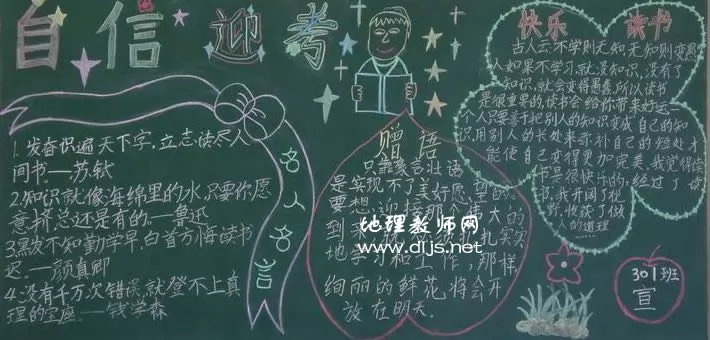 自信迎考
1.发奋识遍天下字,立志读尽人
间书——苏轼
2.知识就像海绵里的水,只要你愿
意挤总还是有的.—鲁迅
3.黑发不知勤学早,白首方悔读书
迟.—颜真卿
4.没有千万次错误,就登不上真
理的宝座.—钱学森
名人名言
赠语
只靠豪言壮语
是实现不了美好愿望的
要想迎接
到
地学习和工作,那样,
绚丽的鲜花将会开
放在明天.
快乐 读书
古人云:不学则无知,无知则变愚
人如果不学习,就没知识,没有了
知识,就会变得愚蠢,所以读书
是很重要的,读书会给你带来好运.
个人只要善于把别人的知识变成自己的知
识,用别人的长处来弥补自己的短处才
能使自己变得更加完美.我觉得读
书是很快乐的,经过了读
书,我开阔了视
野,收获了做
人的道理
......
301班
宣
地理教师网
www.dljs.net